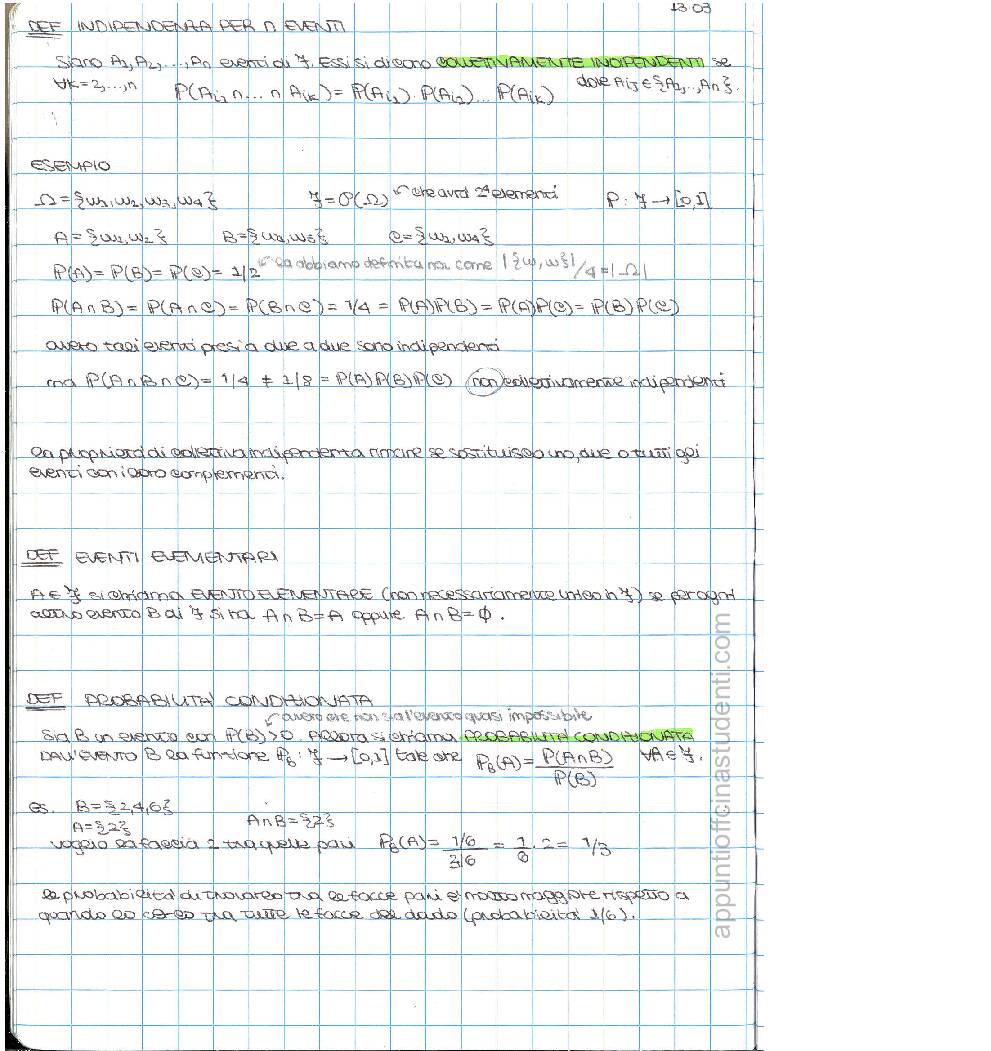 13.03
DEF INDIPENDENZA PER n EVENTI
Siano A₁, A₂, ..., An eventi di F. Essi si dicono COLLETTIVAMENTE INDIPENDENTI se
∀k=2,...,n P(Ai₁ ∩ ... ∩ Aik) = P(Ai₁)·P(Ai₂)... P(Aik) dove Aij ∈ {A₁,..,An}.
ESEMPIO
Ω = {ω₁, ω₂, ω₃, ω₄} F = P(Ω) che avrà 2⁴ elementi P: F → [0,1]
A = {ω₁, ω₂} B = {ω₁, ω₃} C = {ω₁, ω₄}
P(A) = P(B) = P(C) = 1/2 la abbiamo definita noi come |{ω,ω}|/4=|Ω|
P(A∩B) = P(A∩C) = P(B∩C) = 1/4 = P(A)P(B) = P(A)P(C) = P(B)P(C)
ovvero tali eventi presi a due a due sono indipendenti
ma P(A∩B∩C) = 1/4 ≠ 1/8 = P(A)P(B)P(C) non collettivamente indipendenti
la proprietà di collettiva indipendenza rimane se sostituisco uno, due o tutti gli
eventi con i loro complementi.
DEF EVENTI ELEMENTARI
A ∈ F si chiama EVENTO ELEMENTARE (non necessariamente unico in F) se per ogni
altro evento B di F si ha A∩B=A oppure A∩B=∅.
DEF PROBABILITA' CONDIZIONATA
ovvero che non sia l'evento quasi impossibile
Sia B un evento con P(B)>0. Allora si chiama PROBABILITA' CONDIZIONATA
DALL'EVENTO B la funzione P_B: F → [0,1] tale che P_B(A) = P(A∩B)/P(B) ∀A ∈ F.
es. B = {2,4,6}
A = {2} A∩B = {2}
voglio la faccia 2 tra quelle pari P_B(A) = 1/6 / 3/6 = 1/6 · 2 = 1/3
la probabilità di trovarlo tra le facce pari è molto maggiore rispetto a
quando lo cerco tra tutte le facce del dado (probabilità 1/6).
appuntiofficinastudenti.com